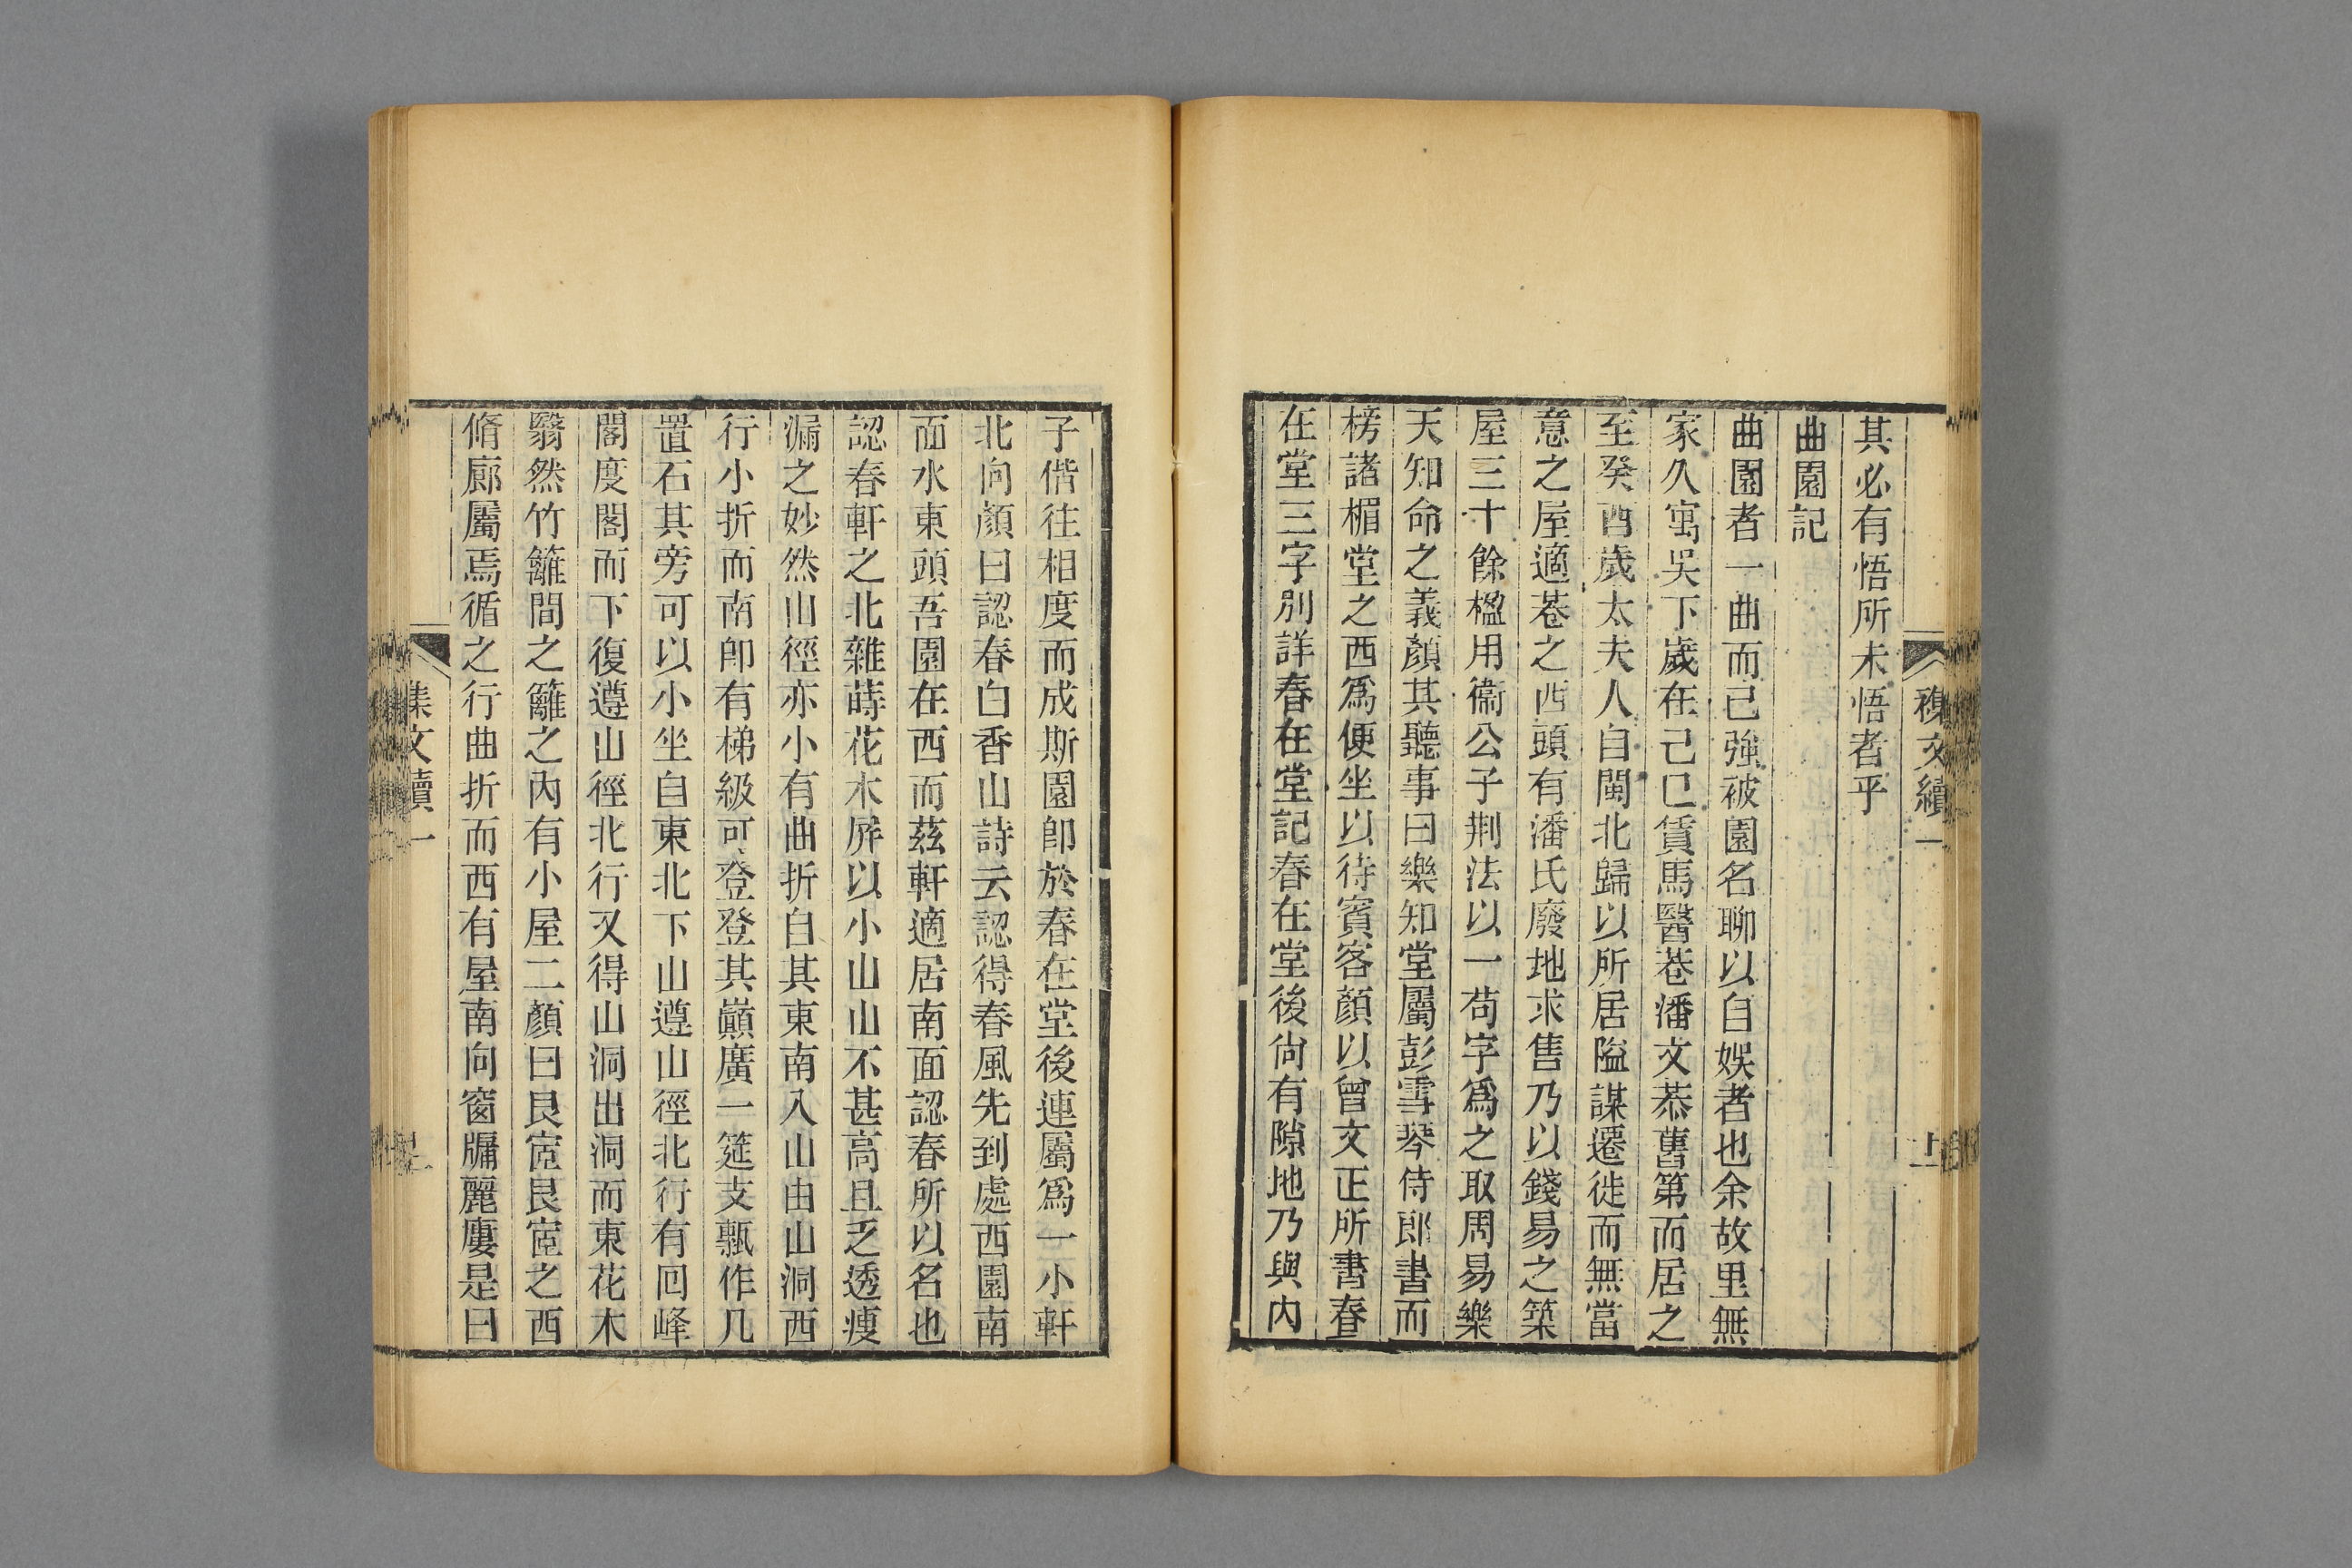 其必有悟所未悟者乎
曲園記
曲園者一曲而已強被園名聊以自娛者也余故里無
家久寓吳下歲在己巳賃馬醫巷潘文恭舊第而居之
至癸酉歲太夫人自閩北歸以所居隘謀遷徙而無當
意之屋適巷之西頭有潘氏廢地求售乃以錢易之築
屋三十餘楹用衞公子荆法以一苟字爲之取周易樂
天知命之義顏其聽事曰樂知堂屬彭雪琴侍郎書而
榜諸楣堂之西爲便坐以待賓客顏以曾文正所書春
在堂三字別詳春在堂記春在堂後尙有隙地乃與內
子偕往相度而成斯園卽於春在堂後連屬爲一小軒
北向顏曰認春白香山詩云認得春風先到處西園南
面水東頭吾園在西而茲軒適居南面認春所以名也
認春軒之北雜蒔花木屏以小山山不甚高且乏透瘦
漏之妙然山徑亦小有曲折自其東南入山由山洞西
行小折而南卽有梯級可登登其巔廣一筵支瓢作几
置石其旁可以小坐自東北下山遵山徑北行有回峰
閣度閣而下復遵山徑北行又得山洞出洞而東花木
翳然竹籬間之籬之內有小屋二顏曰艮宧艮宧之西
脩廊屬焉循之行曲折而西有屋南向窗牖麗廔是曰
文續一